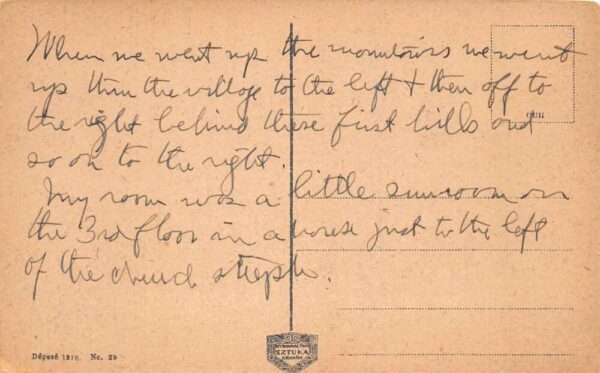 When we went up the mountains we went
up thru the village to the left & then off to
the right behind these first hills and
so on to the right.
My room was a little sunroom on
the 3rd floor in a house just to the left
of the church steeple.
Déposé 1916. No. 29
SZTUKA
KRAKÓW